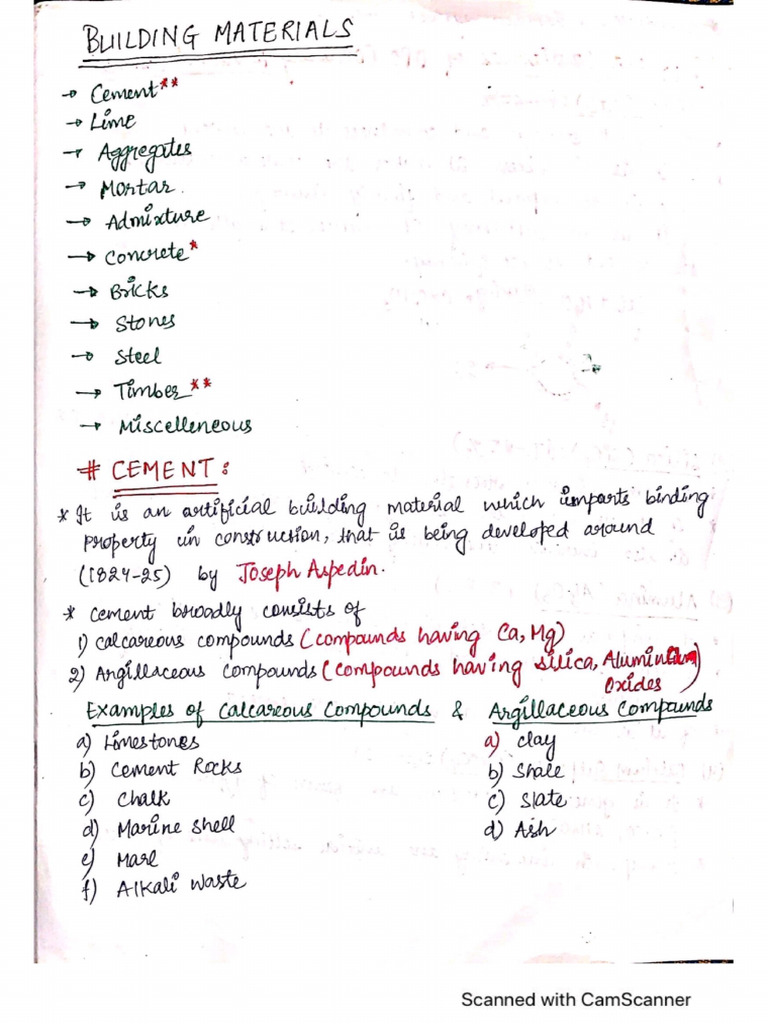 BUILDING MATERIALS
→ Cement**
→ Lime
→ Aggregates
→ Mortar.
→ Admixture
→ Concrete*
→ Bricks
→ Stones
→ Steel
→ Timber**
→ Miscelleneous
# CEMENT:
* It is an artificial building material which imparts binding
property in construction, that is being developed around
(1824-25) by Joseph Aspedin.
* cement broadly consists of
1) calcareous compounds (compounds having Ca, Mg)
2) Argillaceous compounds (compounds having silica, Aluminium
Oxides)
Examples of Calcareous Compounds & Argillaceous Compounds
a) Limestones a) clay
b) Cement Rocks b) Shale
c) Chalk c) Slate
d) Marine Shell d) Ash
e) Marl
f) Alkali Waste
Scanned with CamScanner